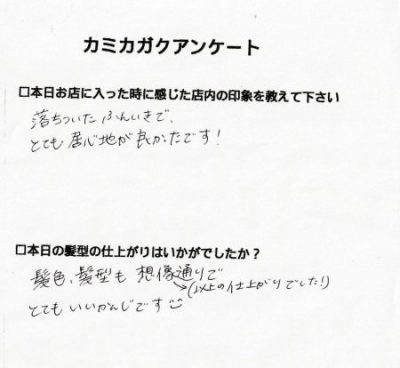 カミカガクアンケート
□本日お店に入った時に感じた店内の印象を教えて下さい
落ちついた ふんいきで、
とても 居心地が良かったです!
□本日の髪型の仕上がりはいかがでしたか?
髪色、髪型も 想像通りで
→(以上の仕上がりでした!)
とても いいかんじです